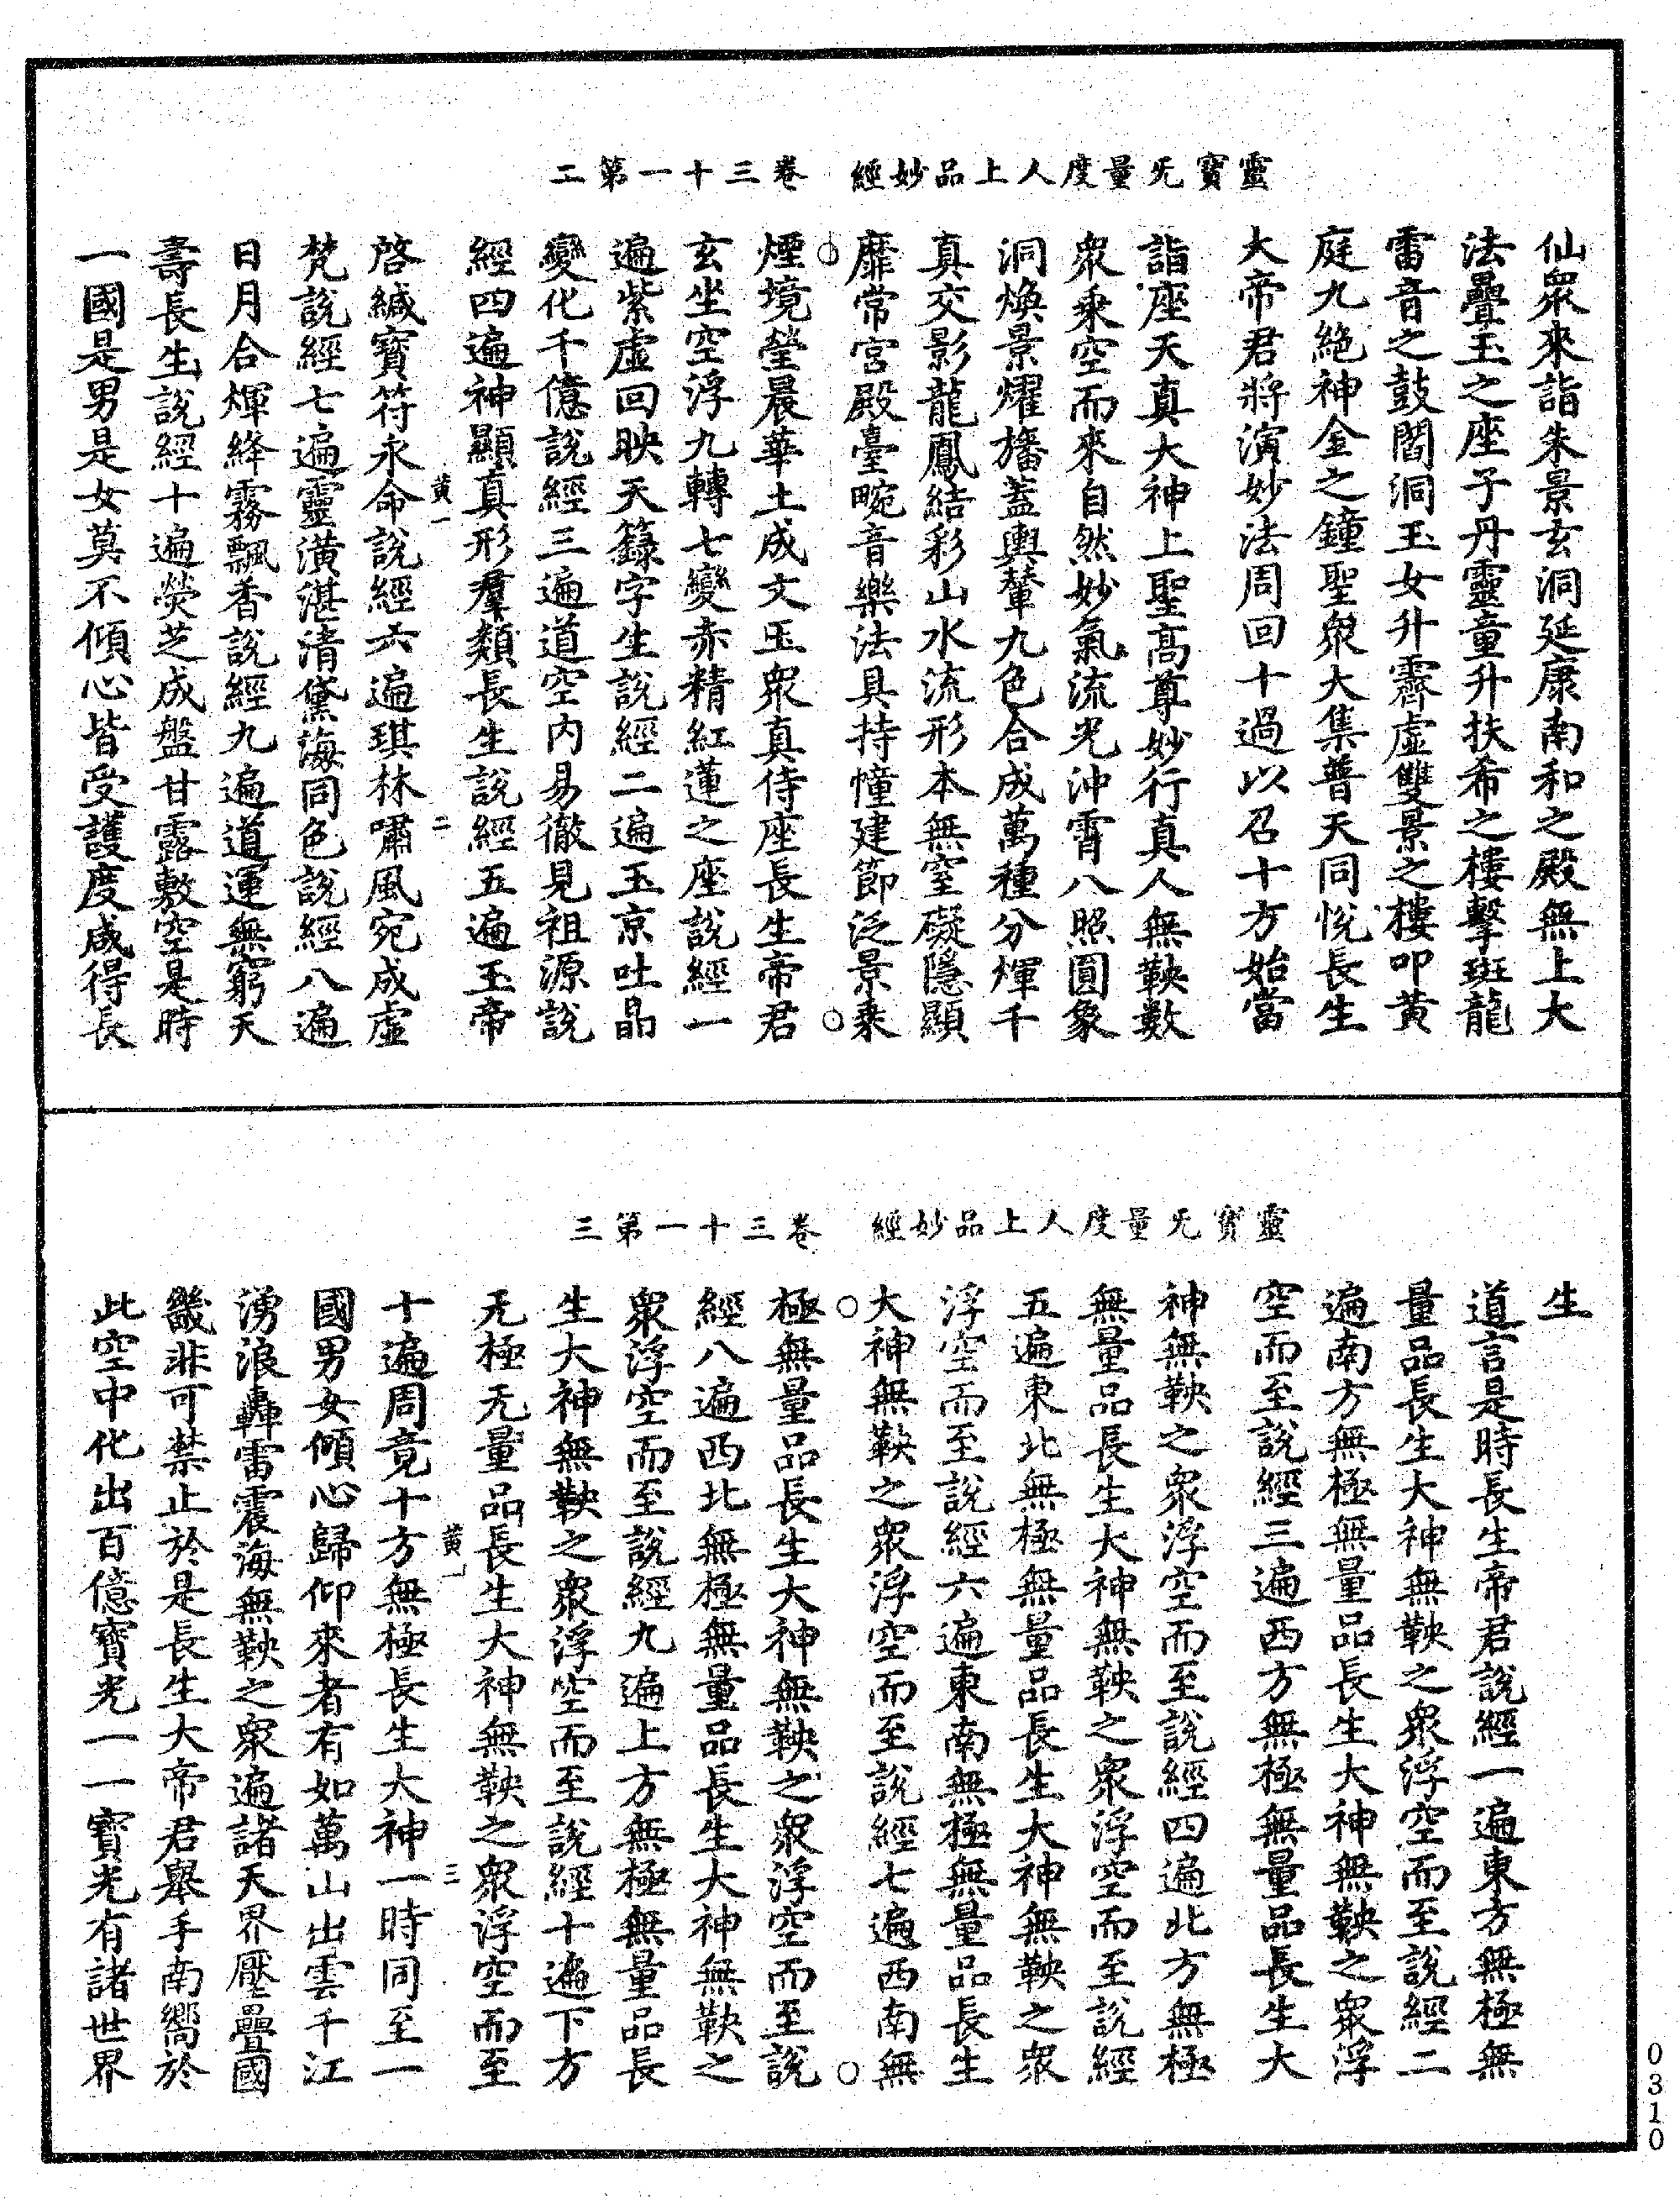 靈寶无量度人上品妙經 卷三十一第二
仙眾來詣朱景玄洞延康南和之殿無上大
法疊玉之座子丹靈童升扶希之樓擊斑龍
雷音之鼓閻洞玉女升霽虛雙景之樓叩黃
庭九絕神金之鐘聖眾大集普天同悅長生
大帝君將演妙法周回十過以召十方始當
詣座天真大神上聖高尊妙行真人無鞅數
眾乘空而來自然妙氣流光沖霄八照圓象
洞煥景燿旛蓋輿輦九色合成萬種分煇千
真交影龍鳳結彩山水流形本無窒礙隱顯
靡常宮殿臺畹音樂法具持幢建節泛景乘
煙境瑩晨華土成文玉眾真侍座長生帝君
玄坐空浮九轉七變赤精紅蓮之座說經一
遍紫虛回映天籙字生說經二遍玉京吐晶
變化千億說經三遍道空內易徹見祖源說
經四遍神顯真形羣類長生說經五遍玉帝
黃一 二
啓緘寶符永命說經六遍琪林嘯風宛成虛
梵說經七遍靈潢湛清黛海同色說經八遍
日月合煇絳霧飄香說經九遍道運無窮天
壽長生說經十遍熒芝成盤甘露敷空是時
一國是男是女莫不傾心皆受護度咸得長
靈寶无量度人上品妙經 卷三十一第三
生
道言是時長生帝君說經一遍東方無極無
量品長生大神無鞅之眾浮空而至說經二
遍南方無極無量品長生大神無鞅之眾浮
空而至說經三遍西方無極無量品長生大
神無鞅之眾浮空而至說經四遍北方無極
無量品長生大神無鞅之眾浮空而至說經
五遍東北無極無量品長生大神無鞅之眾
浮空而至說經六遍東南無極無量品長生
大神無鞅之眾浮空而至說經七遍西南無
極無量品長生大神無鞅之眾浮空而至說
經八遍西北無極無量品長生大神無鞅之
眾浮空而至說經九遍上方無極無量品長
生大神無鞅之眾浮空而至說經十遍下方
无極无量品長生大神無鞅之眾浮空而至
黃一 三
十遍周竟十方無極長生大神一時同至一
國男女傾心歸仰來者有如萬山出雲千江
湧浪轟雷震海無鞅之眾遍諸天界壓疊國
畿非可禁止於是長生大帝君舉手南嚮於
此空中化出百億寶光一一寶光有諸世界
0310